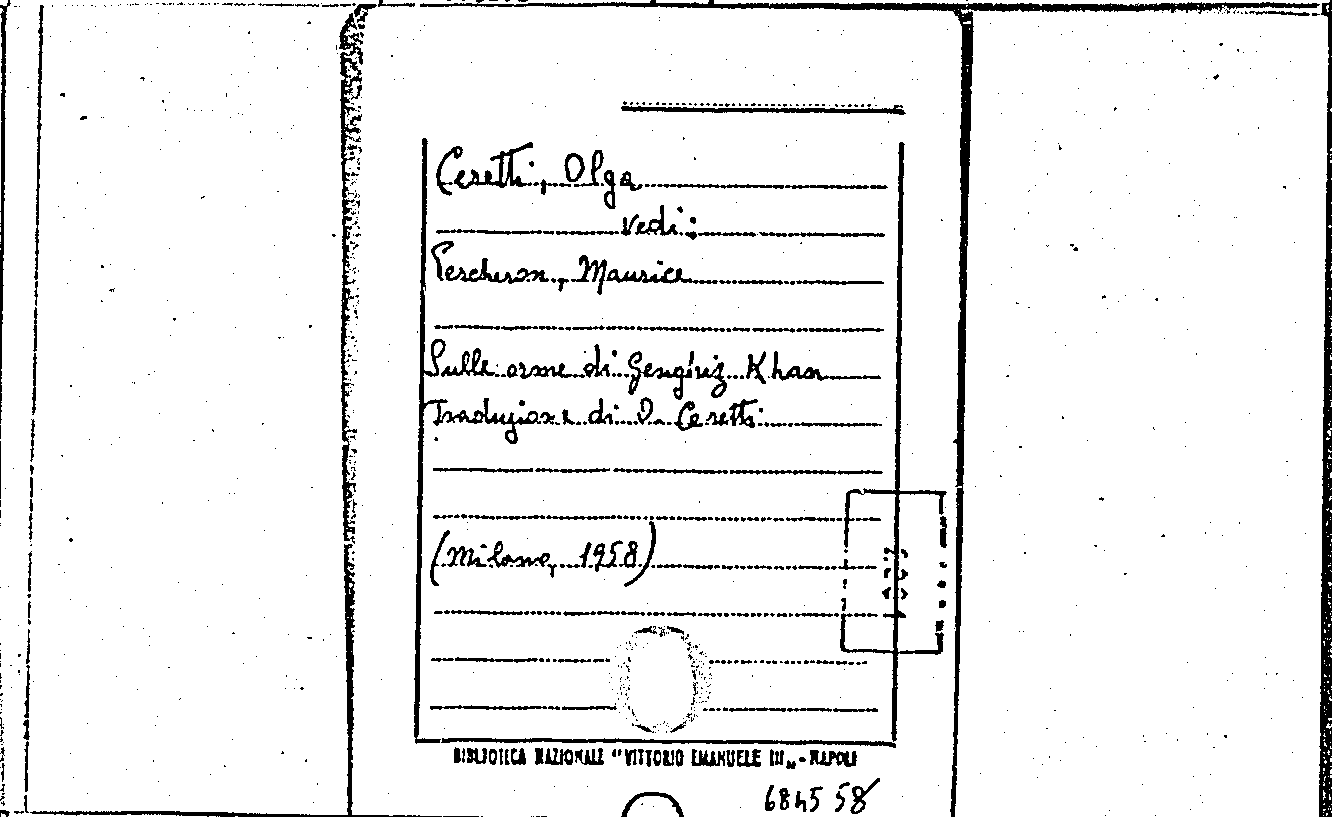 Ceretti, Olga
vedi:
Percheron, Maurice
Sulle orme di Gengiz Khan
Traduzione di O. Ceretti
(Milano, 1958)
BIBLIOTECA NAZIONALE "VITTORIO EMANUELE III„ - NAPOLI
6845 58